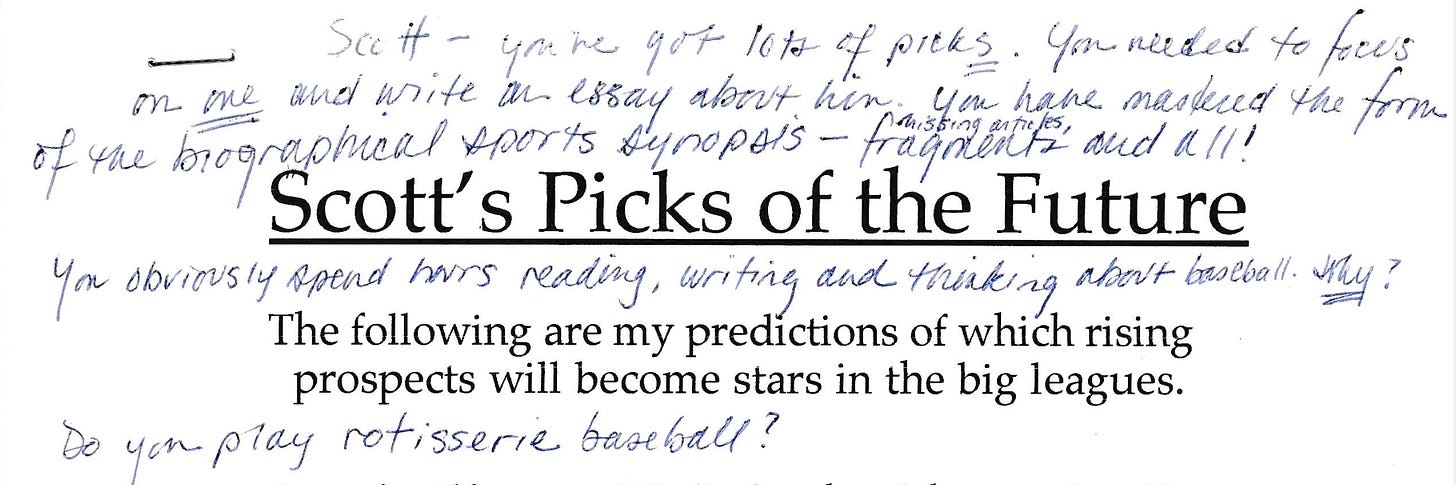 Scott – you've got lots of picks. You needed to focus
on one and write an essay about him. You have mastered the form
missing articles,
of the biographical sports synopsis – fragments and all!
Scott's Picks of the Future
You obviously spend hours reading, writing and thinking about baseball. Why?
The following are my predictions of which rising
prospects will become stars in the big leagues.
Do you play rotisserie baseball?